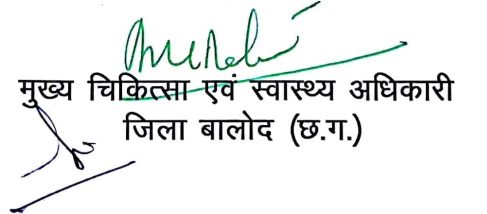 मुख्य चिकित्सा एवं स्वास्थ्य अधिकारी
जिला बालोद (छ.ग.)